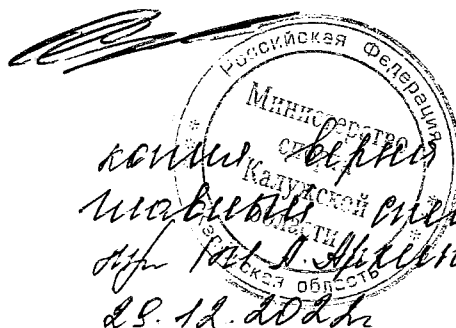 Российская Федерация
Министерство
спорта
Калужской
области
Калужская область
копия верна
главный спе
29.12.2022г